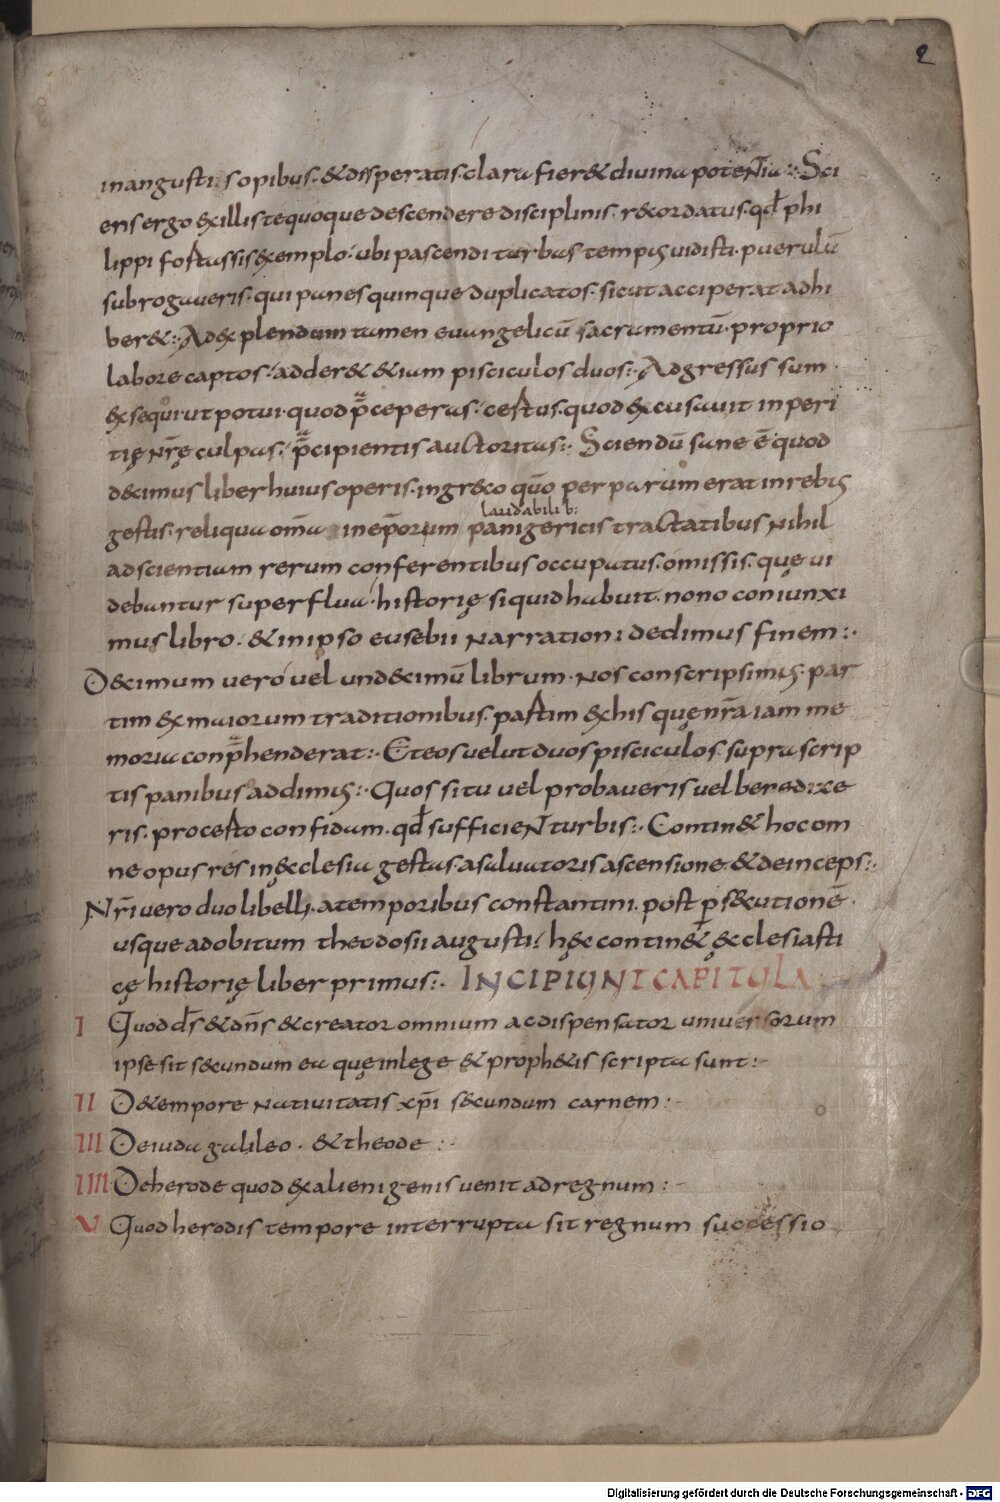 2
in angustis opibus & disperatis clara fier& divina potentia:· Sci
ens ergo ex illis te quoque descendere disciplinis· recordatus· qđ phi
lippi fortassis exemplo· ubi pascendi turbas tempus vidisti· puerulū
subrogaveris· qui panes quinque duplicatos· sicut acciperat adhi
ber&:· Ad explendum tamen euangelicū sacramentū· proprio
labore captos· adder& &iam pisciculos duos:· Adgressus sum
exsequi ut potui· quod p̄ceperas· certus quod excusavit inperi
tię nr̄ę culpas· p̄cipientis auctoritas:· Sciendū sane ē quod
decimus liber huius operis· in greco quō per parum erat in rebus
laudabilib:
gestis· reliqua om̄a in ep̄orum panigericis tractatibus nihil
ad scientiam rerum conferentibus occupatus· omissis· quę vi
debantur superflua· historię si quid habuit· nono coniunxi
mus libro· & in ipso eusebii narrationi dedimus finem:·
Decimum vero vel undecimū librum· nos conscripsimus· par
tim ex maiorum traditionibus· partim ex his quę nr̄a iam me
moria conp̄henderat:· Et eos velut duos pisciculos· supra scrip
tis panibus addimus:· Quos si tu vel probaveris vel beredixe
ris· procerto confidam· qđ sufficient turbis:· Contin& hoc om
ne opus res in ęcclesia gestas a salvatoris ascensione & deinceps:·
Nr̄i vero duo libelli· a temporibus constantini· post p̱secutionē·
usque ad obitum theodosii augusti:· hęc contin& ęcclesiasti
cę historię liber primus:· INCIPIUNT CAPITULA
I Quod d̄s & dn̄s & creator omnium ac dispensator universorum
ipse sit secundum ea quę in lege & proph&is scripta sunt:·
II De tempore nativitatis xp̄i secundum carnem:·
III De iuda galileo· & theode:·
IIII De herode quod ex alienigenis venit ad regnum:·
V Quod herodis tempore interrupta sit regnum successio
Digitalisierung gefördert durch die Deutsche Forschungsgemeinschaft - DFG